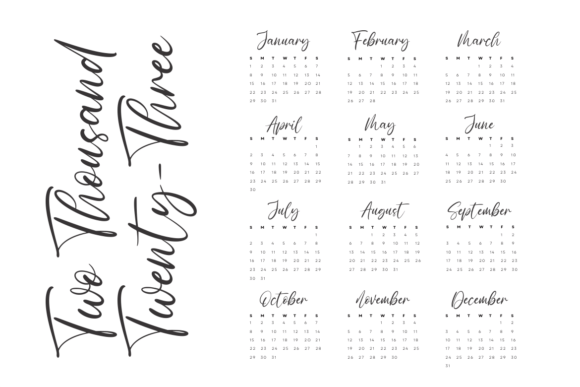 Two Thousand
Twenty-Three
January
S M T W T F S
1 2 3 4 5 6 7
8 9 10 11 12 13 14
15 16 17 18 19 20 21
22 23 24 25 26 27 28
29 30 31
February
S M T W T F S
1 2 3 4
5 6 7 8 9 10 11
12 13 14 15 16 17 18
19 20 21 22 23 24 25
26 27 28
March
S M T W T F S
1 2 3 4
5 6 7 8 9 10 11
12 13 14 15 16 17 18
19 20 21 22 23 24 25
26 27 28 29 30 31
April
S M T W T F S
1
2 3 4 5 6 7 8
9 10 11 12 13 14 15
16 17 18 19 20 21 22
23 24 25 26 27 28 29
30
May
S M T W T F S
1 2 3 4 5 6
7 8 9 10 11 12 13
14 15 16 17 18 19 20
21 22 23 24 25 26 27
28 29 30 31
June
S M T W T F S
1 2 3
4 5 6 7 8 9 10
11 12 13 14 15 16 17
18 19 20 21 22 23 24
25 26 27 28 29 30
July
S M T W T F S
1
2 3 4 5 6 7 8
9 10 11 12 13 14 15
16 17 18 19 20 21 22
23 24 25 26 27 28 29
30 31
August
S M T W T F S
1 2 3 4 5
6 7 8 9 10 11 12
13 14 15 16 17 18 19
20 21 22 23 24 25 26
27 28 29 30 31
September
S M T W T F S
1 2
3 4 5 6 7 8 9
10 11 12 13 14 15 16
17 18 19 20 21 22 23
24 25 26 27 28 29 30
October
S M T W T F S
1 2 3 4 5 6 7
8 9 10 11 12 13 14
15 16 17 18 19 20 21
22 23 24 25 26 27 28
29 30 31
November
S M T W T F S
1 2 3 4
5 6 7 8 9 10 11
12 13 14 15 16 17 18
19 20 21 22 23 24 25
26 27 28 29 30
December
S M T W T F S
1 2
3 4 5 6 7 8 9
10 11 12 13 14 15 16
17 18 19 20 21 22 23
24 25 26 27 28 29 30
31